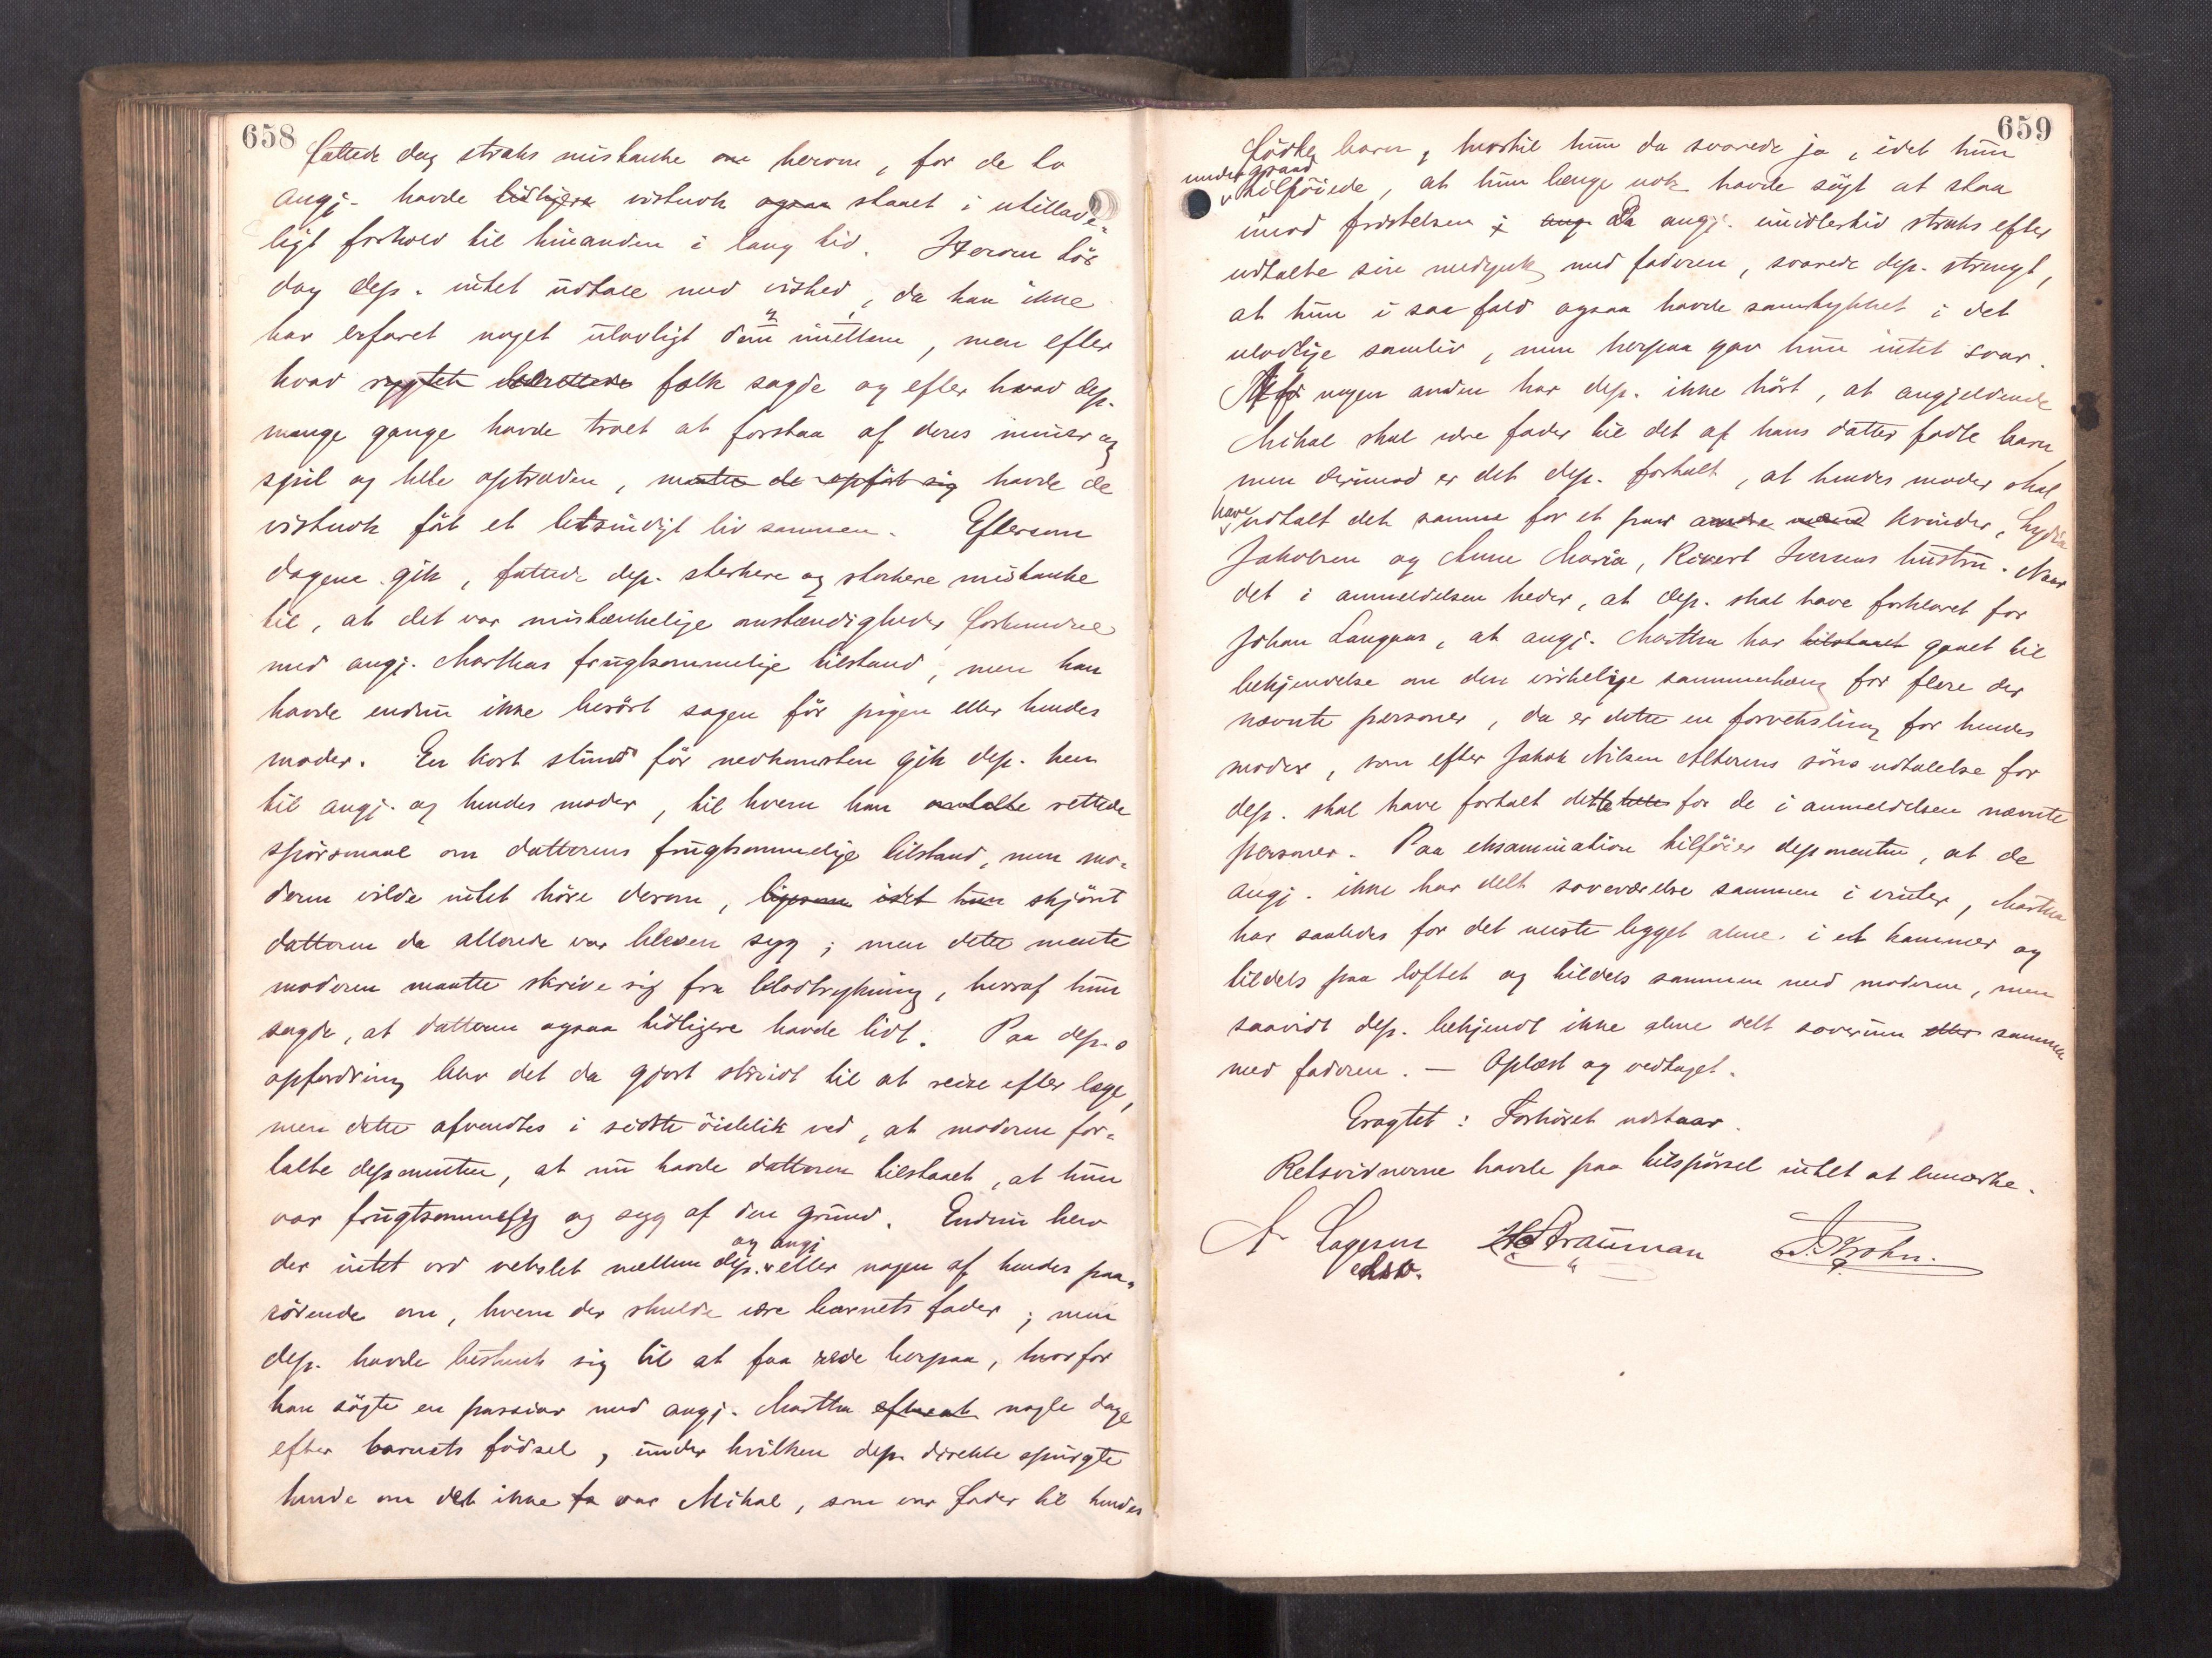 658
fattede dog straks mistanke om herom, for de to
angj. havde tidligere vistnok ogsaa staaet i utillade-
ligt forhold til hinanden i lang tid. Herom tör
dog dep. intet udtale med vished, da han ikke
har erfaret noget ulovligt dem imellem, men efter
hvad rygtet berettede folk sagde og efter hvad dep.
mange gange havde troet at forstaa af deres miner og
spil og hele optræden, maatte de opfört sig havde de
vistnok fört et letsindigt liv sammen. Eftersom
dagene gik, fattede dep. sterkere og sterkere mistanke
til, at det var mistænkelige omstændigheder forbundne
med angj. Marthas frugtsommelige tilstand, men han
havde endnu ikke berört sagen för pigen eller hendes
moder. En kort stund för nedkomsten gik dep. hen
til angj. og hendes moder, til hvem han omtalte rettede
spörsmaal om datterens frugtsommelige tilstand, men mo-
deren vilde intet höre derom, ligesom idet hun skjönt
datteren da allerede var bleven syg; men dette mente
moderen maatte skrive sig fra blodtrykning, hvoraf hun
sagde, at datteren ogsaa tidligere havde lidt. Paa dep.s
opfordring blev det da gjort istand til at reise efter læge,
men dette afvendtes i sidste öieblik ved, at moderen for-
talte deponenten, at nu havde datteren tilstaaet, at hun
var frugtsommelig og syg af den grund. Endnu blev
og angj
der intet ord vekslet mellem dep. eller nogen af hendes paa-
rörende om, hvem der skulde være barnets fader; men
dep. havde bestemt sig til at faa rede herpaa, hvorfor
han sögte en passiar med angj. Martha efterat nogle dage
efter barnets födsel, under hvilken dep. direkte spurgte
hende om det ikke fa var Mikal, som var fader til hendes
659
fødte barn, hvortil hun da svarede ja, idet hun
under graad
tilföiede, at hun længe nok havde sögt at staa
imod fristelsen; ang Da angj. imidlertid straks efter
udtalte sin medynk med faderen, svarede dep. strengt,
at hun i saa fald ogsaa havde samtykket i det
ulovlige samliv, men herpaa gav hun intet svar.
Af nogen anden har dep. ikke hört, at angjeldende
Mikal skal være fader til det af hans datter fødte barn
men derimod er det dep. fortalt, at hendes moder skal
have
udtalt det samme for et par andre mænd kvinder, Lydia
Jakobsen og Anne Maria, Rikert Iversens hustru. Naar
det i anmeldelsen heder, at dep. skal have forklaret for
Johan Langaas, at angj. Martha har tilstaaet gaaet til
bekjendelse om den virkelige sammenhæng for flere der
nævnte personer, da er dette en forveksling for hendes
moder, som efter Jakob Nilsen Alterens söns udtalelse for
dep. skal have fortalt dette for de i anmeldelsen nævnte
personer. Paa eksamination tilföier deponenten, at de
angj. ikke har delt soveværelse sammen i vinter, Martha
har saaledes for det meste ligget alene i et kammer og
tildels paa loftet og tildels sammen med moderen, men
saavidt dep. bekjendt ikke alene delt soverum eller sammen
med faderen. — Oplæst og vedtaget.
Eragtet: Forhöret udstaar.
Retsvidnerne havde paa tilspörsel intet at bemærke.
A. Lagesen H Strauman J. Krohn.